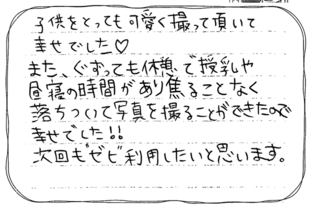 子供をとっても可愛く撮って頂いて
幸せでした♡
また、ぐずっても休憩で授乳や
昼寝の時間があり焦ることなく
落ちついて写真を撮ることができたので
幸せでした!!
次回もぜひ利用したいと思います。